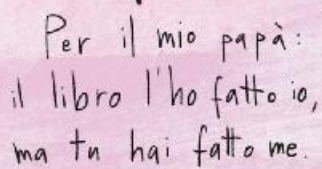 Per il mio papà:
il libro l'ho fatto io,
ma tu hai fatto me.